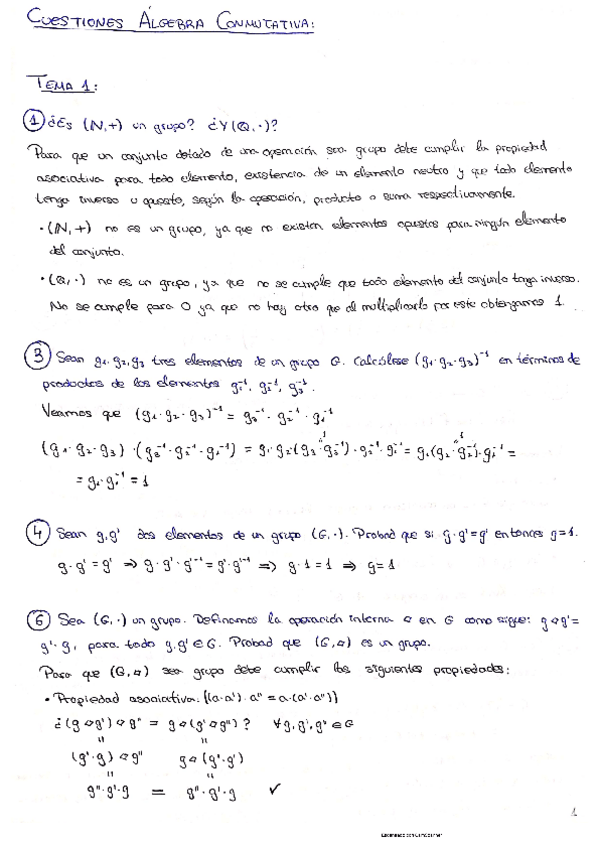 CUESTIONES ÁLGEBRA CONMUTATIVA:
TEMA 1:
① ¿Es (N,+) un grupo? ¿Y (Q,·)?
Para que un conjunto dotado de una operación sea grupo debe cumplir la propiedad
asociativa para todo elemento, existencia de un elemento neutro y que todo elemento
tenga inverso u opuesto, según la operación, producto o suma respectivamente.
• (N,+) no es un grupo, ya que no existen elementos opuestos para ningún elemento
del conjunto.
• (Q,·) no es un grupo, ya que no se cumple que todo elemento del conjunto tenga inverso.
No se cumple para 0 ya que no hay otro que al multiplicarlo por este obtengamos 1.
③ Sean g₁, g₂, g₃ tres elementos de un grupo G. Calcúlese (g₁·g₂·g₃)⁻¹ en términos de
productos de los elementos g₁⁻¹, g₂⁻¹, g₃⁻¹.
Veamos que (g₁·g₂·g₃)⁻¹ = g₃⁻¹·g₂⁻¹·g₁⁻¹
(g₁·g₂·g₃)·(g₃⁻¹·g₂⁻¹·g₁⁻¹) = g₁·g₂·(g₃·g₃⁻¹)·g₂⁻¹·g₁⁻¹ = g₁·(g₂·g₂⁻¹)·g₁⁻¹ =
= g₁·g₁⁻¹ = 1
④ Sean g, g' dos elementos de un grupo (G,·). Probad que si g·g'=g' entonces g=1.
g·g' = g' ⇒ g·g'·g'⁻¹ = g'·g'⁻¹ ⇒ g·1 = 1 ⇒ g=1
⑥ Sea (G,·) un grupo. Definamos la operación interna ▫ en G como sigue: g▫g'=
g'·g, para todo g,g'∈G. Probad que (G,▫) es un grupo.
Para que (G,▫) sea grupo debe cumplir las siguientes propiedades:
• Propiedad asociativa: {(a·a')·a" = a·(a'·a")}
¿(g▫g')▫g" = g▫(g'▫g")? ∀g,g',g"∈G
" "
(g'·g)▫g" g▫(g"·g')
" "
g"·g'·g = g"·g'·g ✓
1